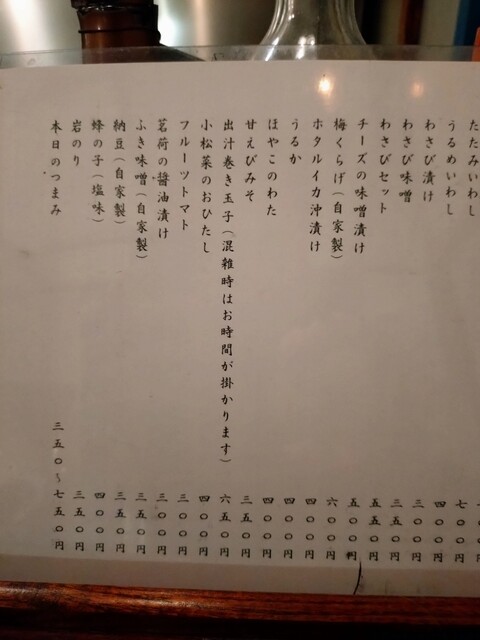 たたみいわし 七〇〇円
うるめいわし 四〇〇円
わさび漬け 三〇〇円
わさび味噌 三五〇円
わさびセット 五五〇円
チーズの味噌漬け 五〇〇円
梅くらげ(自家製) 六〇〇円
ホタルイカ沖漬け 四〇〇円
うるか 四〇〇円
ほやこのわた 四〇〇円
甘えびみそ 三五〇円
出汁巻き玉子(混雑時はお時間が掛かります) 六五〇円
小松菜のおひたし 四〇〇円
フルーツトマト 三〇〇円
茗荷の醤油漬け 三〇〇円
ふき味噌(自家製) 三五〇円
納豆(自家製) 三五〇円
蜂の子(塩味) 四〇〇円
岩のり 三五〇円
本日のつまみ 三五〇〜七五〇円